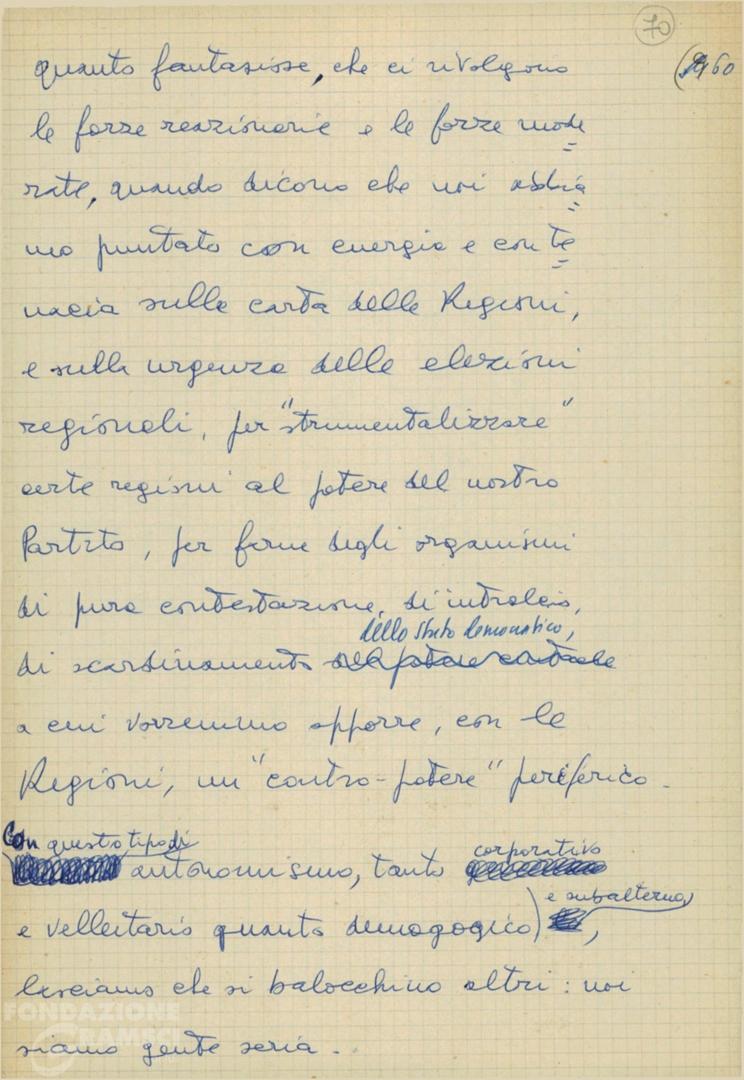 70
60
quanto fantasiose, che ci rivolgono
le forze reazionarie e le forze mode
rate, quando dicono che noi abbia
mo puntato con energia e con te
nacia sulla carta delle Regioni,
e sulla urgenza delle elezioni
regionali, per "strumentalizzare"
certe regioni al potere del nostro
Partito, per farne degli organismi
di pura contestazione, di intralcio,
dello Stato democratico,
di scardinamento del potere centrale
a cui vorremmo opporre, con le
Regioni, un "contro-potere" periferico.
Con questo tipo di
corporativo
autonomismo, tanto
e subalterno
e velleitario quanto demagogico,
lasciamo che si balocchino altri: noi
siamo gente seria.
FONDAZIONE
GRAMSCI